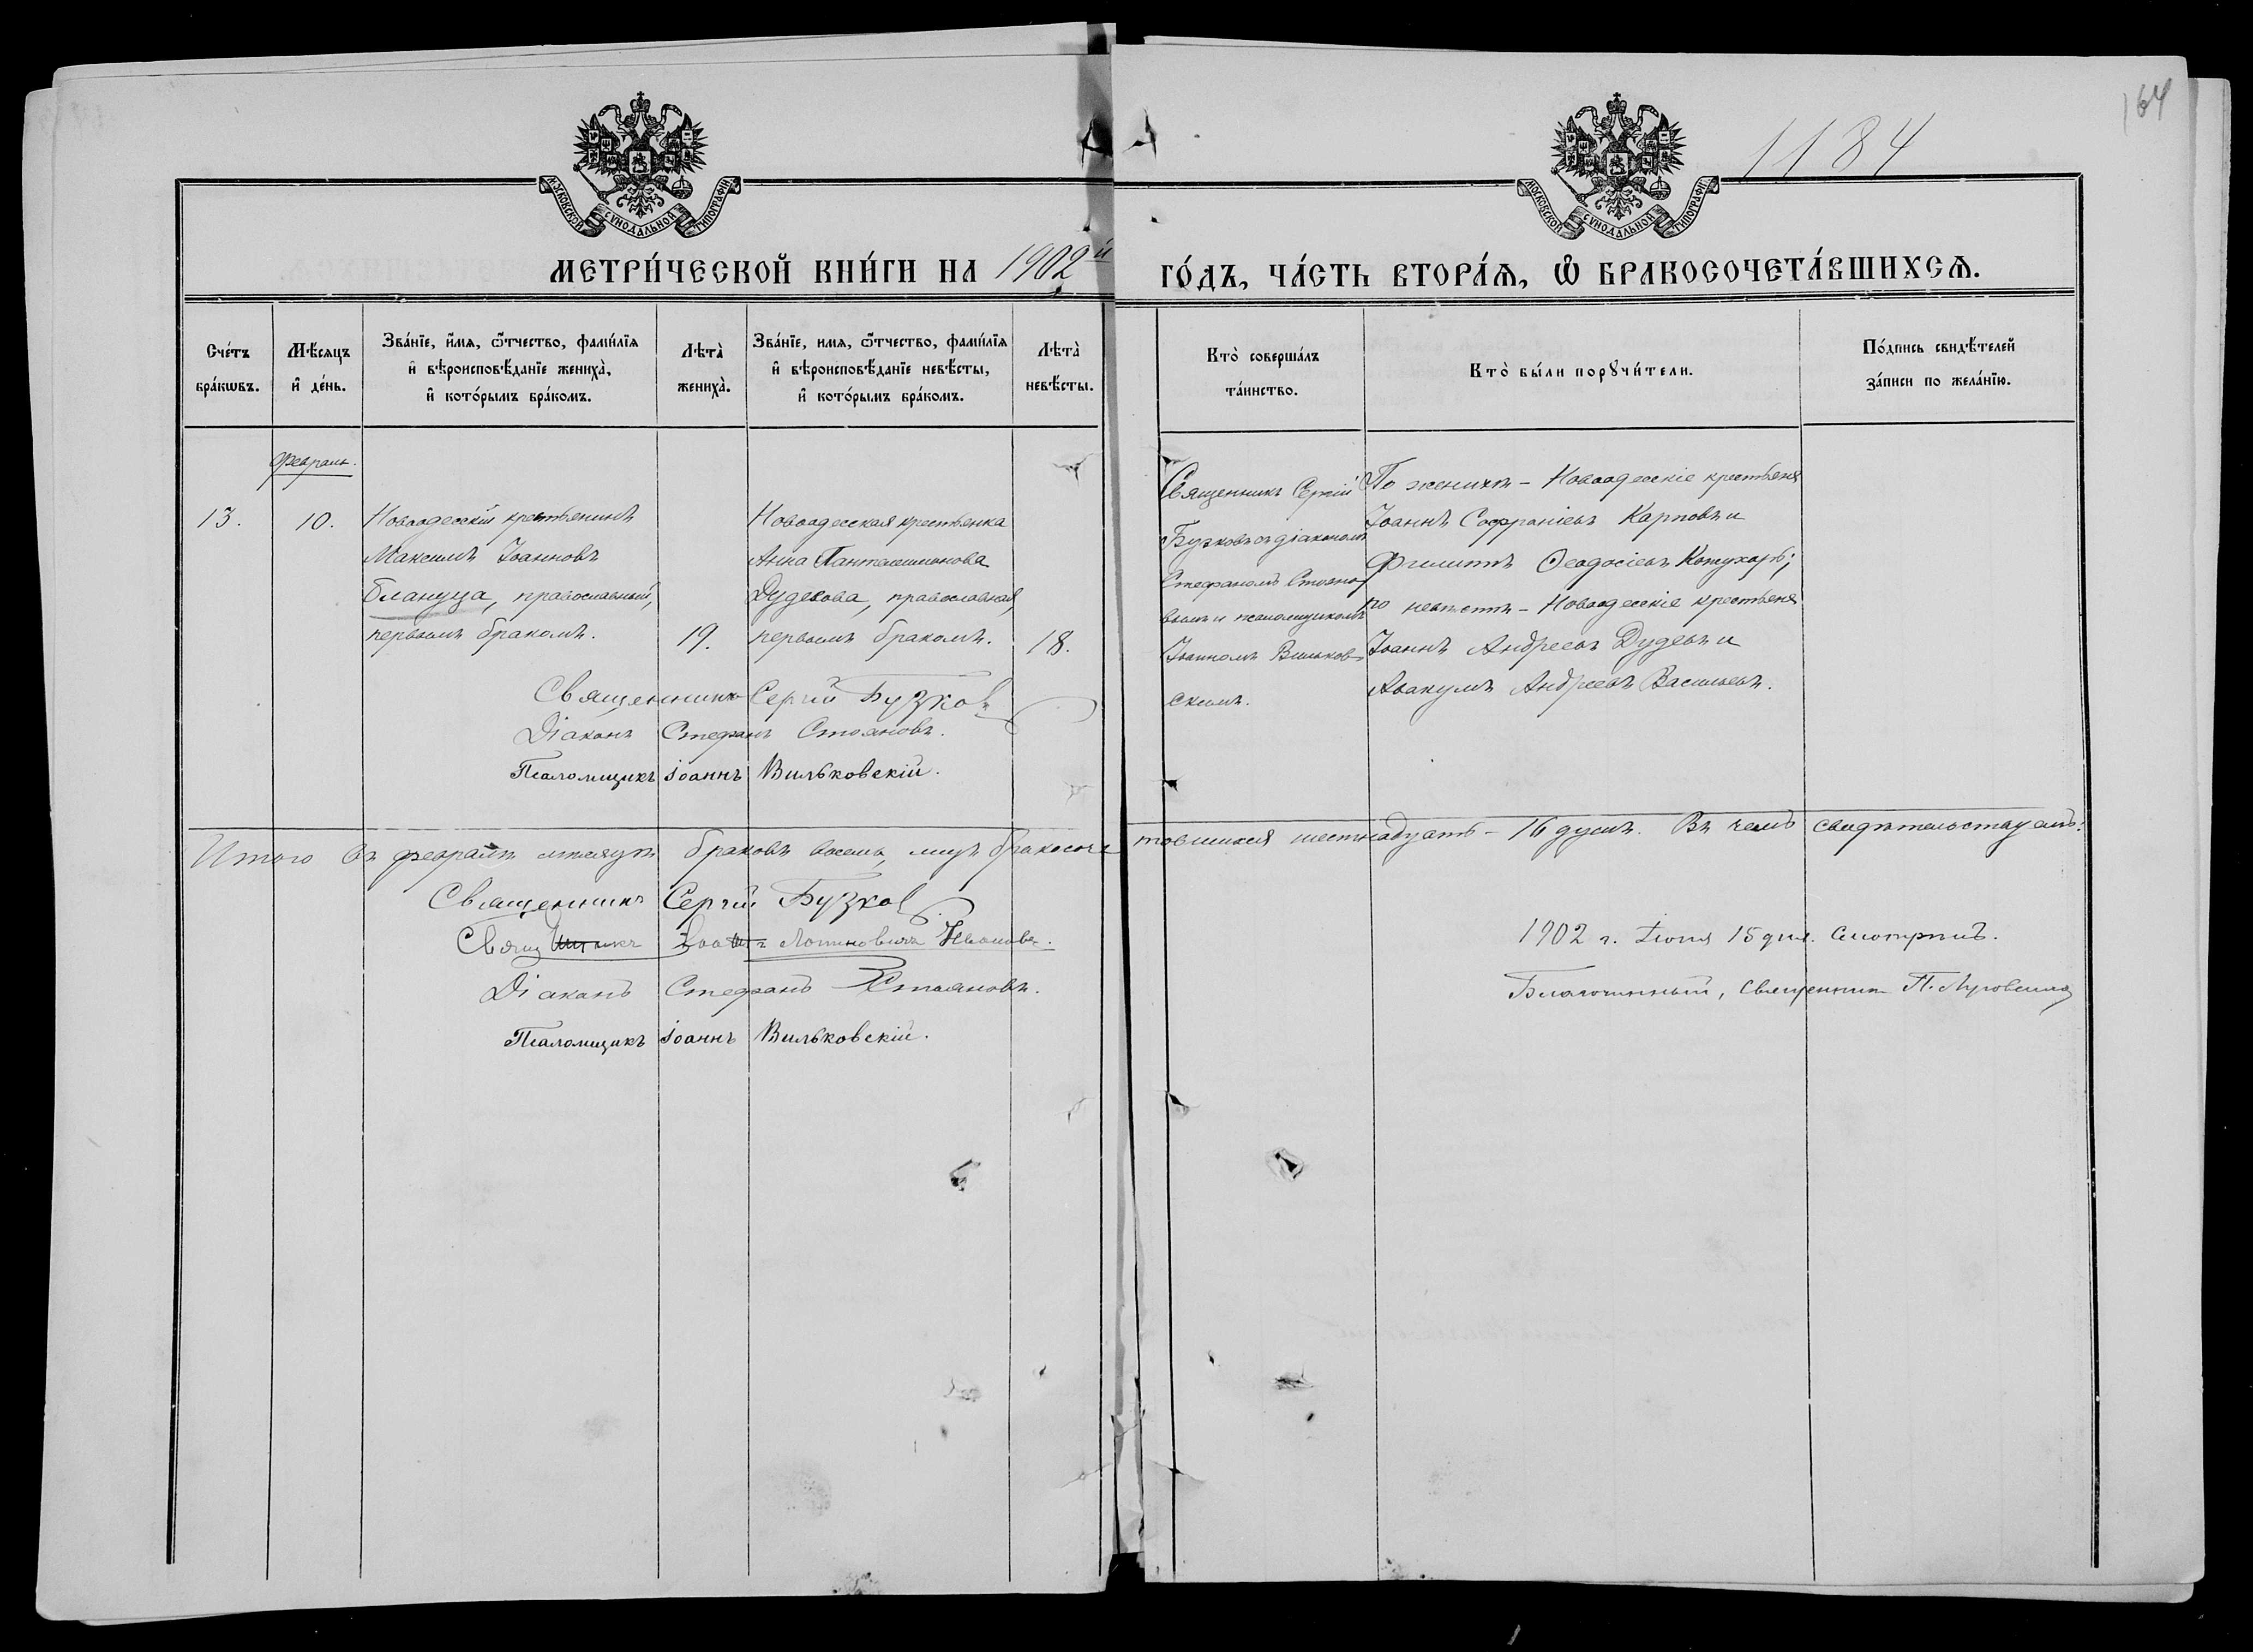 164
1184
МОСКОВСКОЙ СѴНОДАЛЬНОЙ ТИПОГРАФІИ
МОСКОВСКОЙ СѴНОДАЛЬНОЙ ТИПОГРАФІИ
МЕТРИ́ЧЕСКОЙ КНИ́ГИ НА 1902й ГО́ДЪ, ЧА́СТЬ ВТОРА́Ѧ, Ѽ БРАКОСОЧЕТА́ВШИХСѦ.
Сче́тъ бра́кѡвъ.
Мѣ́сяцъ и҆ де́нь.
Зва́нїе, и҆́мѧ, ѻ҆́тчество, фами́лїѧ и҆ вѣроисповѣ́данїе жениха̀, и҆ кото́рымъ бра́комъ.
Лѣта̀ жениха̀.
Зва́нїе, имѧ, ѻ҆́тчество, фами́лїѧ и҆ вѣроисповѣ́данїе невѣ́сты, и҆ кото́рымъ бра́комъ.
Лѣта̀ невѣ́сты.
Кто̀ соверша́лъ та́инство.
Кто̀ бы́ли порꙋчи́тели.
По́дпись свидѣ́телей за́писи по жела́нїю.
Февраль.
13.
10.
Новоодесскій крестьянинъ
Максимъ Іоанновъ
Блануца, православный,
первымъ бракомъ.
19.
Новоодесская крестьянка
Анна Пантелеимонова
Дудева, православная,
первымъ бракомъ.
18.
Священникъ Сергій
Бузковъ съ діакономъ
Стефаномъ Стояно-
вымъ и псаломщикомъ
Іоанномъ Вильков-
скимъ.
По женихѣ – Новоодесскіе крестьяне
Іоаннъ Софроніевъ Карповъ и
Филиппъ Ѳеодосіевъ Кожухарь;
по невѣстѣ – Новоодесскіе крестьяне
Іоаннъ Андреевъ Дудевъ и
Аввакумъ Андреевъ Васильевъ.
Священникъ Сергій Бузков
Діаконъ Стефанъ Стояновъ.
Псаломщикъ Іоаннъ Вильковскій.
Итого въ февралѣ мѣсяцѣ браковъ восемь, лицъ бракосоче-
тавшихся шестнадцать – 16 душъ. Въ чемъ свидѣтельствуемъ:
Священникъ Сергій Бузков
Діаконъ Стефанъ Стояновъ.
Псаломщикъ Іоаннъ Вильковскій.
1902 г. Іюня 15 дня. Смотрѣлъ.
Благочинный, Священник П.